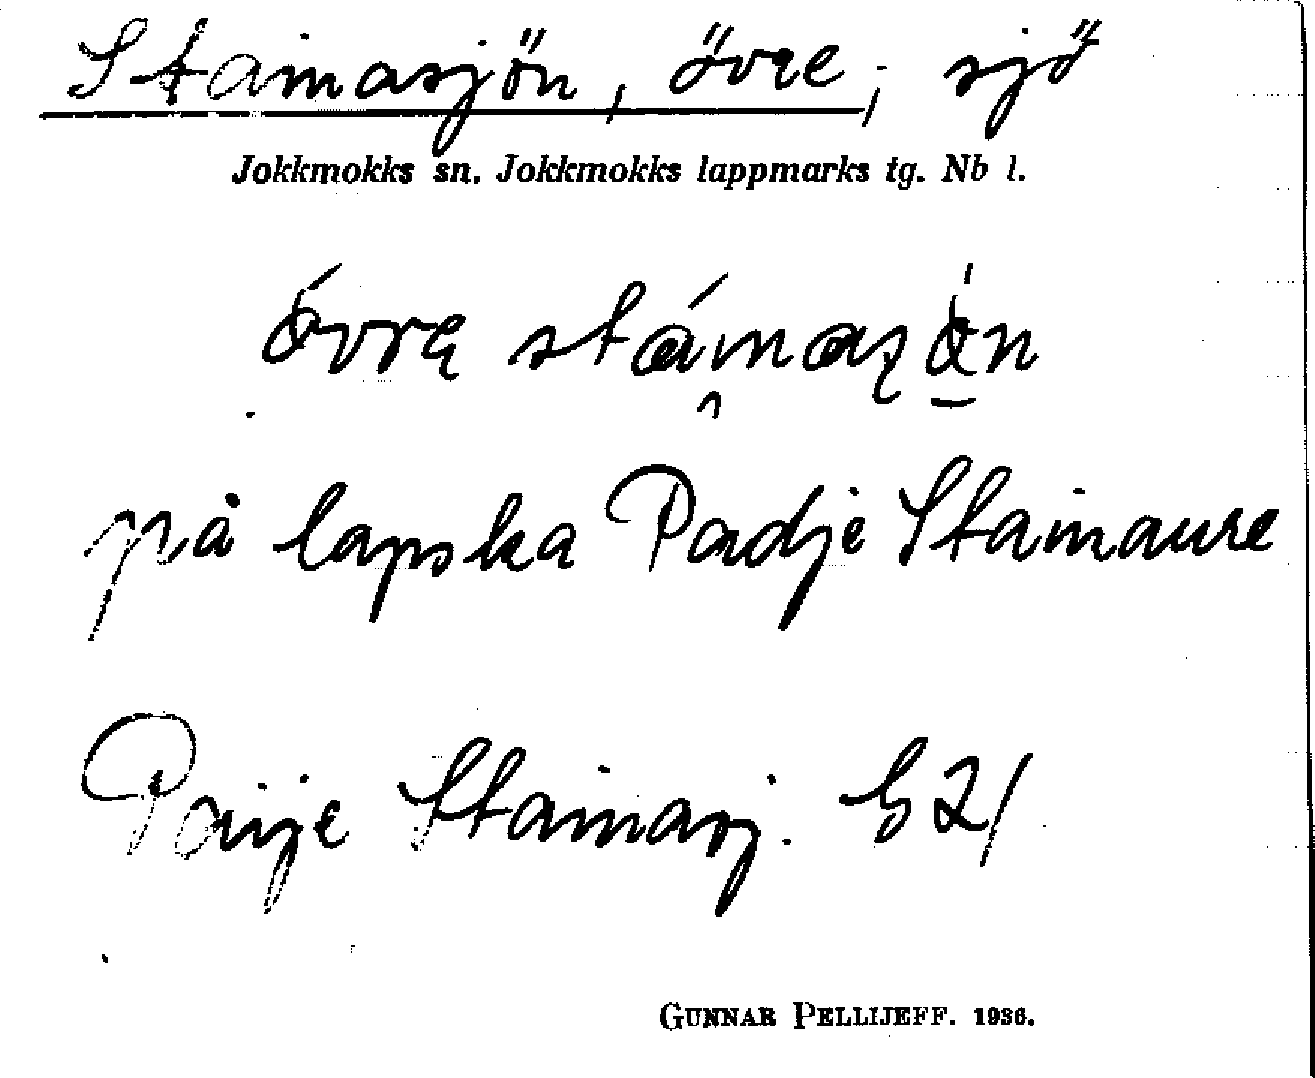 Stainasjön, övre, sjö
Jokkmokks sn. Jokkmokks lappmarks tg. Nb l.
på lapska Padje Stainaure
Paije Stainasj. G 21
GUNNAR PELLIJEFF. 1936.